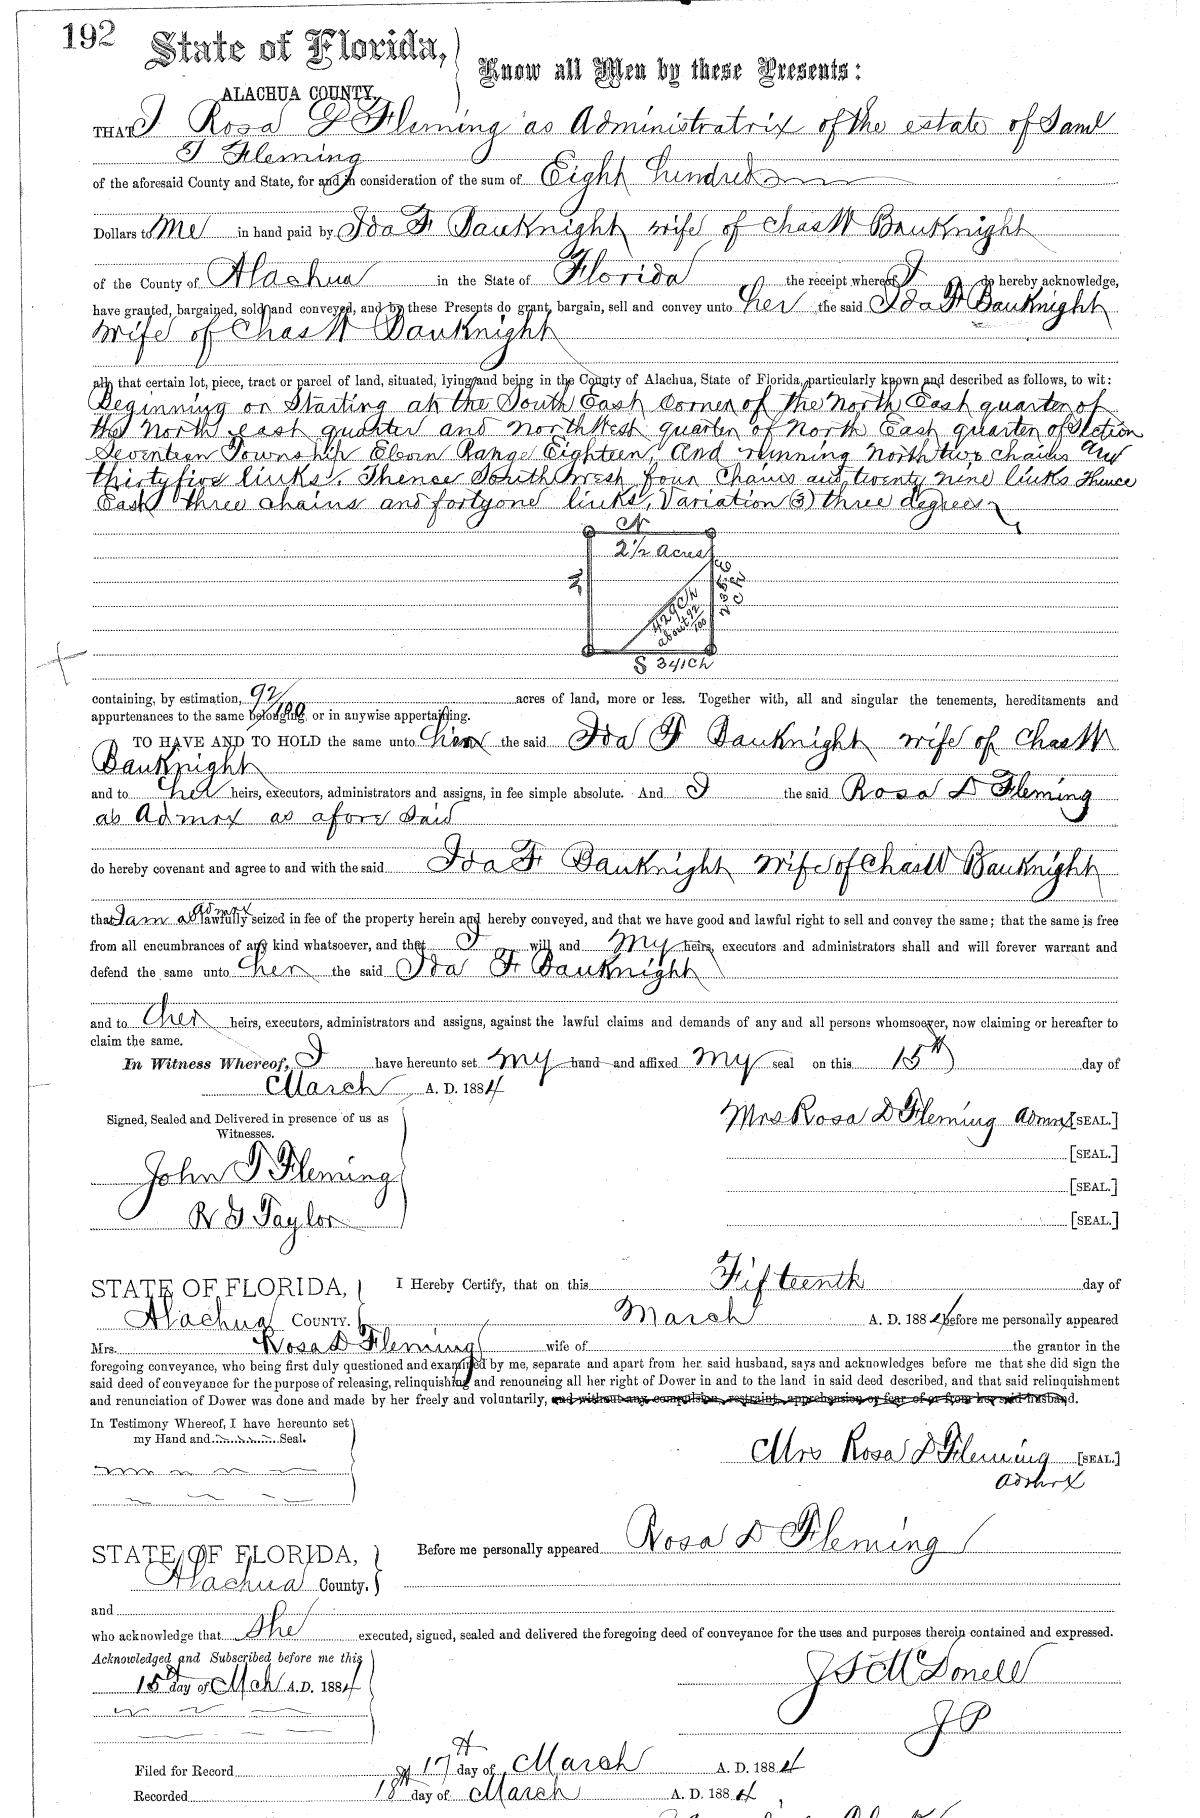 192
State of Florida,
Know all Men by these Presents:
ALACHUA COUNTY,
THAT I Rosa D Fleming as Administratrix of the estate of Saml
T Fleming
of the aforesaid County and State, for and in consideration of the sum of Eight hundred
Dollars to me in hand paid by Ida F Bauknight wife of Chas W Bauknight
of the County of Alachua in the State of Florida the receipt whereof I do hereby acknowledge,
have granted, bargained, sold and conveyed, and by these Presents do grant, bargain, sell and convey unto her the said Ida F Bauknight
wife of Chas W Bauknight
all that certain lot, piece, tract or parcel of land, situated, lying and being in the County of Alachua, State of Florida, particularly known and described as follows, to wit:
Beginning or Starting at the South East corner of the North East quarter of
the North east quarter and North West quarter of North East quarter of Section
Seventeen Township Eleven Range Eighteen, And running North two chains and
thirty five links. Thence South West four Chains and twenty nine links Thence
East three chains and forty one links, Variation (3) three degrees
N
2 1/2 Acres
W
2.35 Ch
E
429 Ch
about 92/100
S 341 Ch
containing, by estimation, 92/100 acres of land, more or less. Together with, all and singular the tenements, hereditaments and
appurtenances to the same belonging, or in anywise appertaining.
TO HAVE AND TO HOLD the same unto her the said Ida F Bauknight wife of Chas W
Bauknight
and to her heirs, executors, administrators and assigns, in fee simple absolute. And I the said Rosa D Fleming
as Admrx as afore said
do hereby covenant and agree to and with the said Ida F Bauknight wife of Chas W Bauknight
that I am as admrx lawfully seized in fee of the property herein and hereby conveyed, and that we have good and lawful right to sell and convey the same; that the same is free
from all encumbrances of any kind whatsoever, and that I will and my heirs, executors and administrators shall and will forever warrant and
defend the same unto her the said Ida F Bauknight
and to her heirs, executors, administrators and assigns, against the lawful claims and demands of any and all persons whomsoever, now claiming or hereafter to
claim the same.
In Witness Whereof, I have hereunto set my hand and affixed my seal on this 15th day of
March A. D. 1884
Signed, Sealed and Delivered in presence of us as
Witnesses.
Mrs Rosa D Fleming Admrx [SEAL.]
[SEAL.]
John T Fleming
[SEAL.]
R G Taylor
[SEAL.]
STATE OF FLORIDA,
I Hereby Certify, that on this Fifteenth day of
Alachua COUNTY.
March A. D. 1884 before me personally appeared
Mrs. Rosa D Fleming wife of the grantor in the
foregoing conveyance, who being first duly questioned and examined by me, separate and apart from her said husband, says and acknowledges before me that she did sign the
said deed of conveyance for the purpose of releasing, relinquishing and renouncing all her right of Dower in and to the land in said deed described, and that said relinquishment
and renunciation of Dower was done and made by her freely and voluntarily, and without any compulsion, restraint, apprehension or fear of or from her said husband.
In Testimony Whereof, I have hereunto set
my Hand and Seal.
Mrs Rosa D Fleming [SEAL.]
Admrx
STATE OF FLORIDA,
Before me personally appeared Rosa D Fleming
Alachua County.
and
who acknowledge that she executed, signed, sealed and delivered the foregoing deed of conveyance for the uses and purposes therein contained and expressed.
Acknowledged and Subscribed before me this
15th day of Mch A.D. 1884
J S McDonell
J P
Filed for Record 17th day of March A. D. 1884
Recorded 18th day of March A. D. 1884